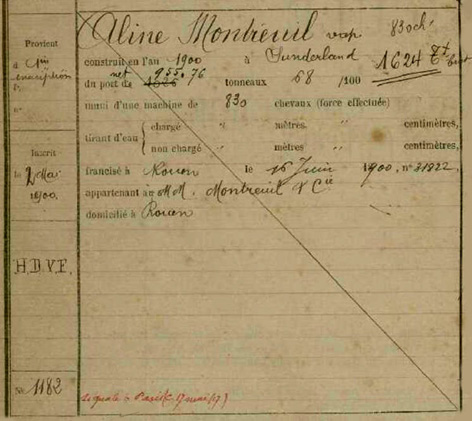 Aline Montreuil vap 830ch.
Provient
à 1re
inscription
f°
n°
construit en l'an 1900 à Sunderland
1624 Tx
net
du port de 1626 955,76 tonneaux 68 /100
muni d'une machine de 830 chevaux (force effectuée)
tirant d'eau { chargé " mètres. " centimètres,
non chargé " mètres " centimètres,
Inscrit
le 2 Mai
1900
francisé à Rouen le 16 Juin 1900, n° 31822,
appartenant à MM. Montreuil & Cie
domicilié à Rouen
H.D.V.F.
N° 1182
Signalé à Paris (